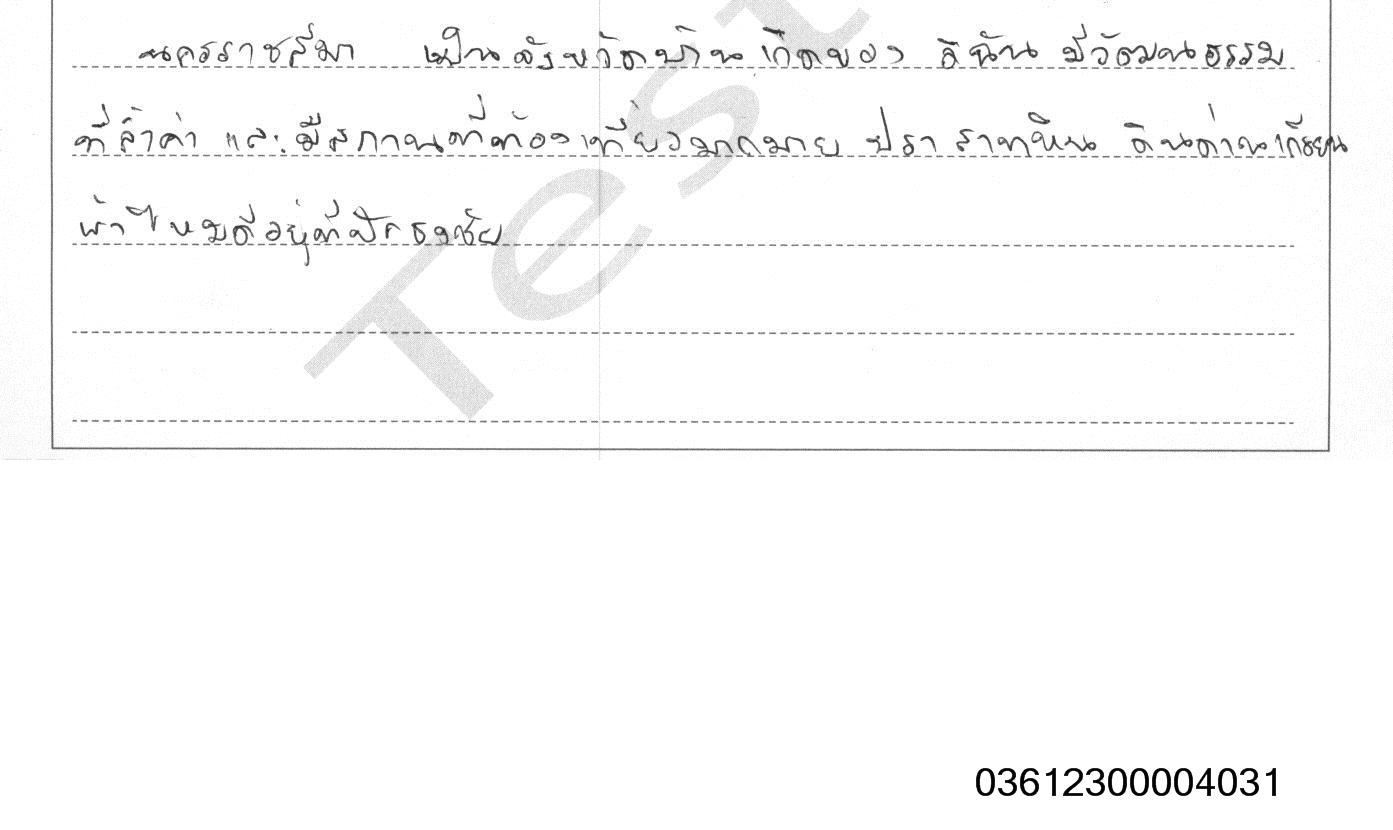 นครราชสีมา เป็นจังหวัดบ้านเกิดของ ดิฉัน มีวัฒนธรรม
ที่ล้ำค่า และมีสถานที่ท่องเที่ยวมากมาย ปราสาทหิน ดินด่านเกรียน
ผ้าไหมดีอยู่ที่ปักธงชัย
Test
03612300004031